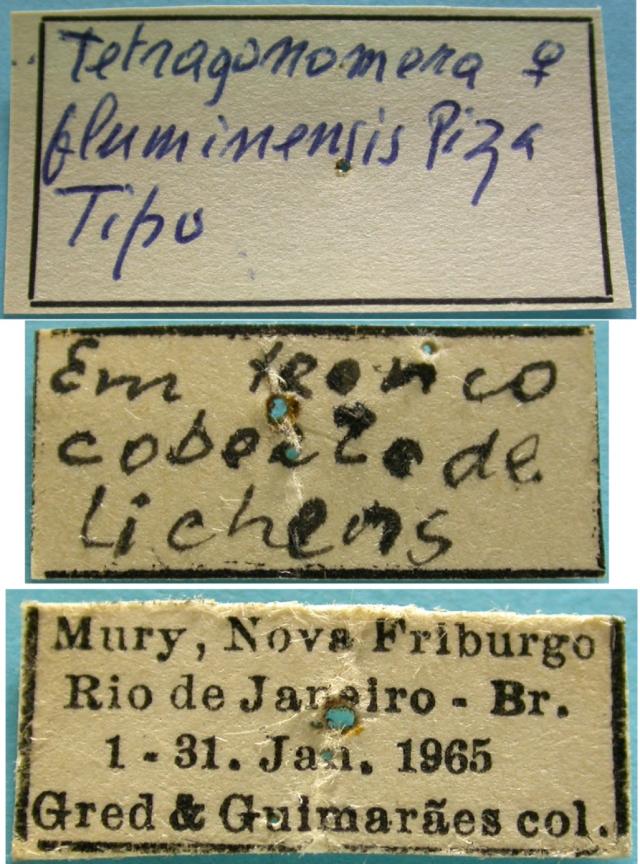 Tetragonomera ♀
fluminensis Piza
Tipo
Em tronco
coberto de
Lichens
Mury, Nova Friburgo
Rio de Janeiro - Br.
1 - 31. Jan. 1965
Gred & Guimarães col.